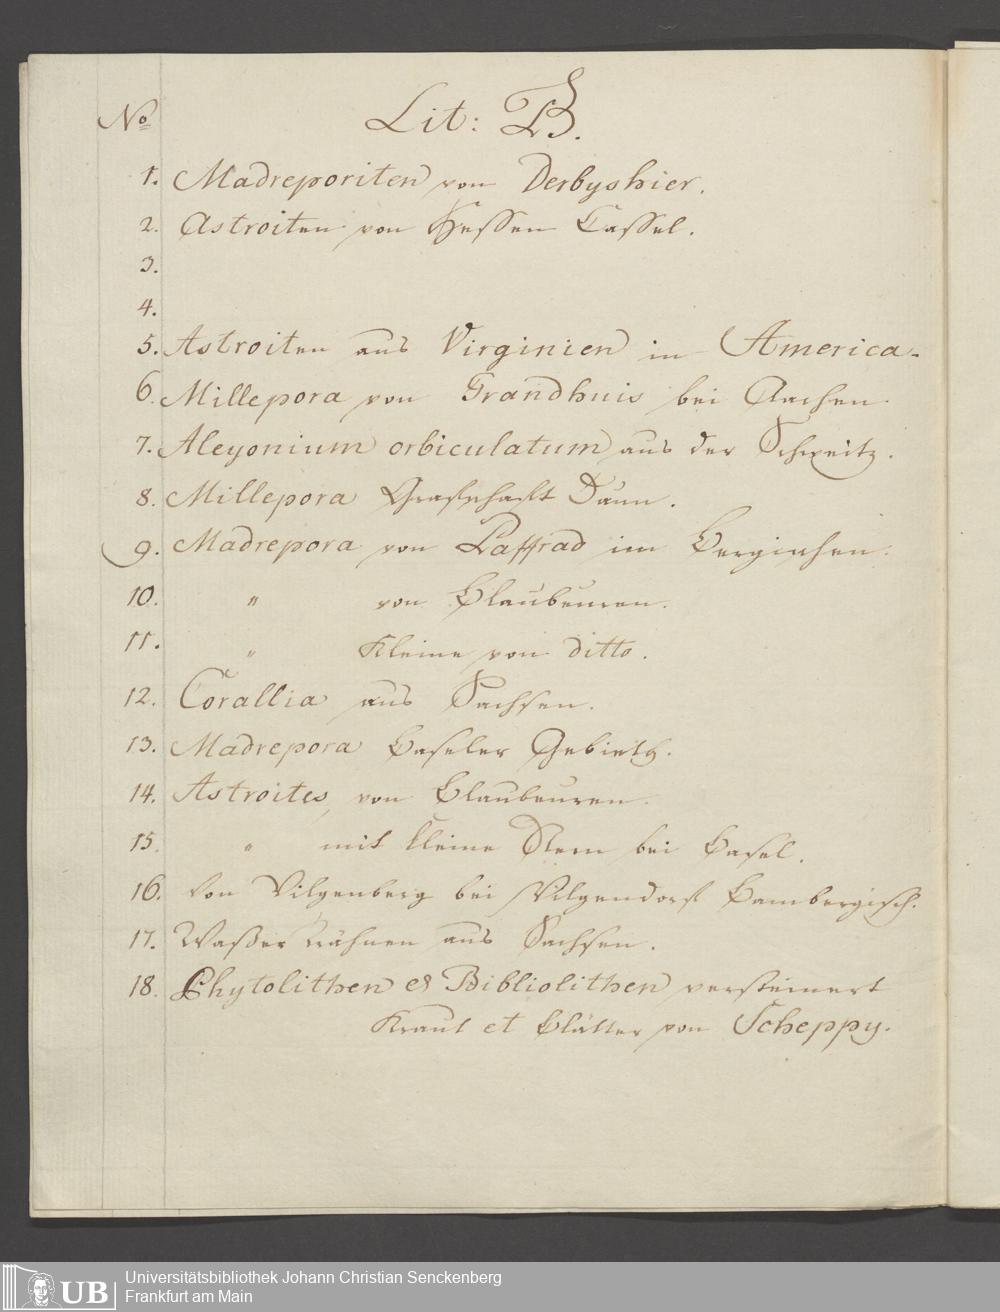 No
Lit: B.
1. Madreporiten von Derbyshier.
2. Astroiten von Hessen Cassel.
3.
4.
5. Astroiten aus Virginien in America.
6. Millepora von Grandhuis bei Aachen
7. Aleyonium orbiculatum aus der Schweitz.
8. Millepora Grafschaft Daun.
9. Madrepora von Paffrad im Bergischen.
10. " von Blaubeuren.
11. " Kleine von ditto.
12. Corallia aus Sachsen.
13. Madrepora Baseler Gebieth.
14. Astroites, von Blaubeuren.
15. " mit kleine Stern bei Basel.
16. Von bei Bambergisch.
17. Waßer aus Sachsen.
18. Phytolithen et Bibliolithen versteinert
Kraut et Blätter von Scheppy.
UB
Universitätsbibliothek Johann Christian Senckenberg
Frankfurt am Main